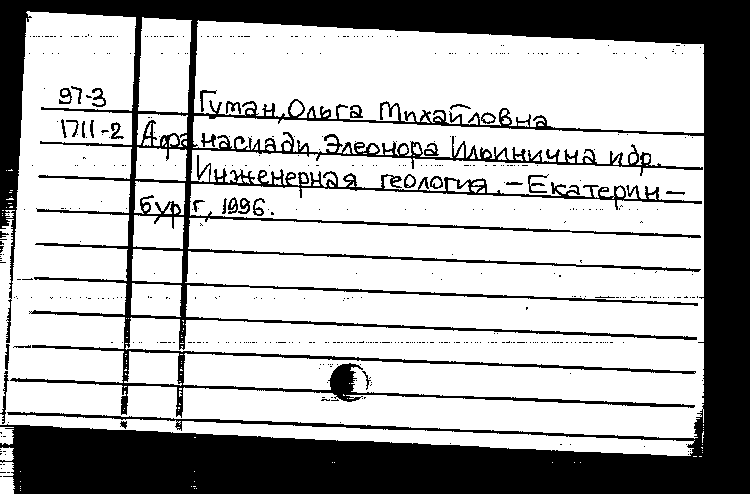 97-3 Гуман, Ольга Михайловна
1711-2 Афанасиади, Элеонора Ильинична и др.
Инженерная геология. – Екатерин-
бург, 1996.